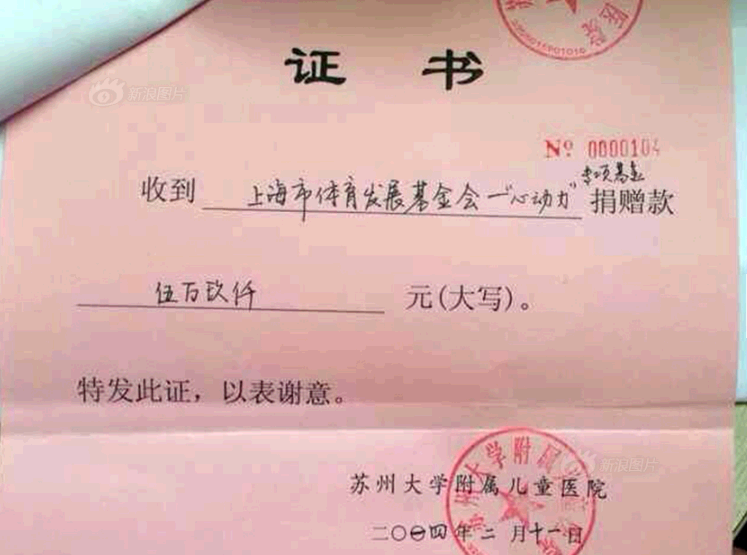 证 书
№ 0000104
专项基金
收到 上海市体育发展基金会—“心动力” 捐赠款
伍万玖仟 元(大写)。
特发此证，以表谢意。
苏州大学附属儿童医院
二〇一四年二月十一日
新浪图片
新浪图片